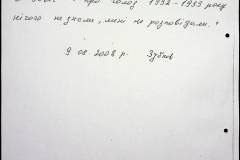 про голод 1932-1933 року
нічого не знали, мені не розповідали.
9.08.2008 р. Зубков